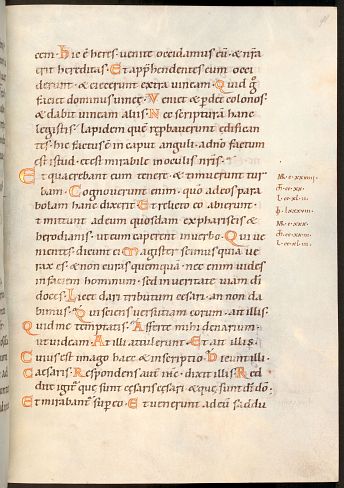 cem · hic ē heres · venite occidamus eū · & nr̄a
erit hereditas · Et app̄hendentes eum occi
derunt · & eiecerunt extra vineam · Quid g̊
faciet dominus vineę · Veniet & p̄det colonos ·
& dabit vineam aliis · Nec scripturā hanc
legistis · lapidem quē reprobaverunt edifican
tes · hic factus ē in caput anguli · a dn̄o factum
est istud · et est mirabile in oculis nr̄is ·
Et quaerebant eum tenere · & timuerunt tur
bam · Cognoverunt enim · quō ad eos para
bolam hanc dixerit · Et relicto eo abierunt ·
Et mittunt ad eum quosdam ex phariseis &
herodianis · ut eum caperent in verbo · Qui ve
nientes · dicunt ei · Magister scimus quia ve
rax es · & non curas quemquā · nec enim vides
in faciem hominum · sed in veritate viam dī
doces · Licet dari tributum cesari · an non da
bimus · Qui sciens versutiam eorum · ait illis ·
Quid me temptatis · Afferte mihi denarium ·
ut videam · At illi attulerunt · Et ait illis ·
Cuius est imago haec & inscriptio · Dicunt illi ·
Caesaris · Respondens aut ihc̄ · dixit illis · Red
dite igit̄ quę sunt cesaris cesari · & quę sunt dī dō ·
Et mirabant̄ sup eo · Et venerunt ad eū saddu